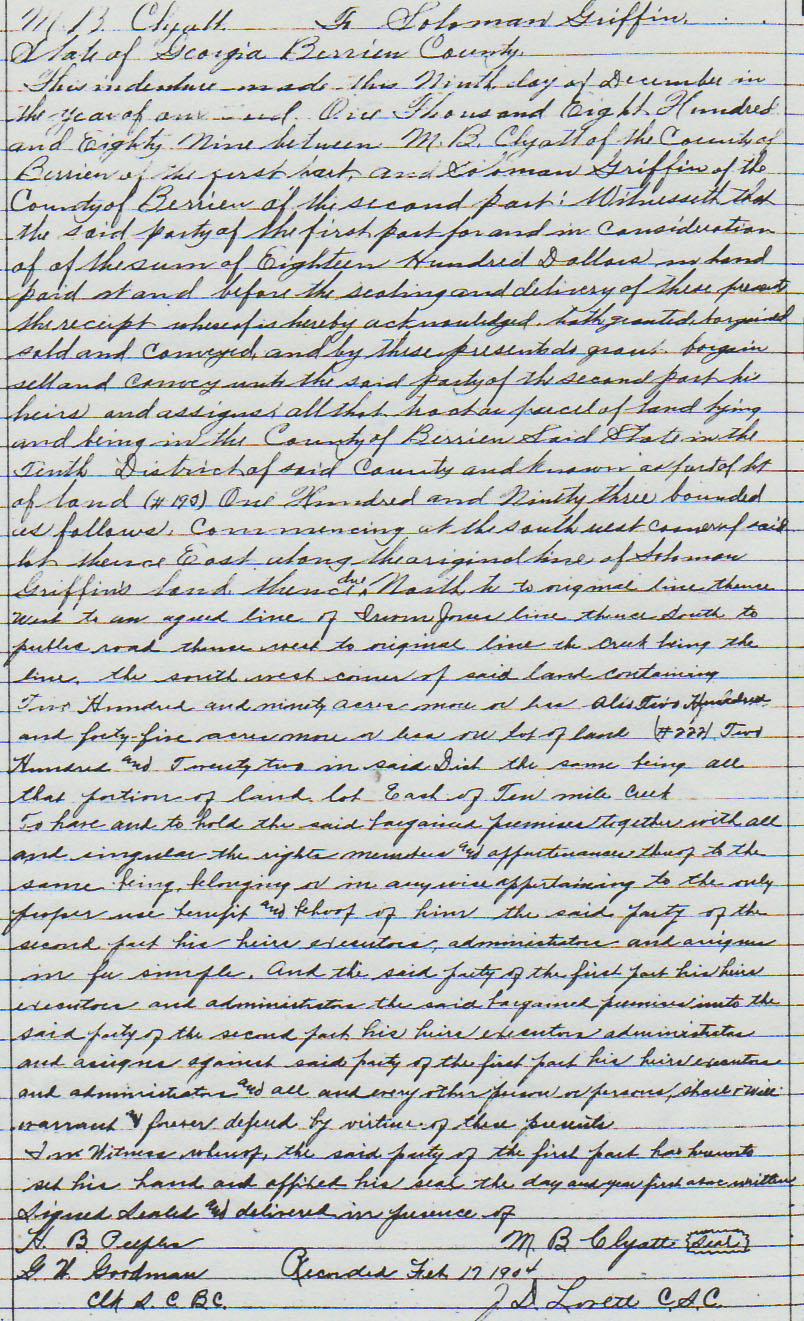 M. B. Clyatt To Soloman Griffin.
State of Georgia Berrien County.
This indenture made this Ninth day of December in
the year of our One Thousand Eight Hundred
and Eighty Nine between M. B. Clyatt of the County of
Berrien of the first part, and Soloman Griffin of the
County of Berrien of the second part: Witnesseth that
the said party of the first part for and in consideration
of of the sum of Eighteen Hundred Dollars in hand
paid at and before the sealing and delivery of these presents
the receipt whereof is hereby acknowledged, hath granted, bargained
sold and conveyed, and by these presents do grant bargain
sell and convey unto the said party of the second part his
heirs and assigns all that tract or parcel of land lying
and being in the County of Berrien Said State in the
Tenth District of said County and known as part of lot
of land (# 193) One Hundred and Ninety three bounded
as follows. Commencing at the south west corner of said
lot thence East along the original line of Soloman
Griffin's land thence due North to to original line thence
West to an agreed line of Irvin Jones line thence South to
public road thence west to original line the creek being the
line, the south west corner of said land containing
Two Hundred and ninety acres more or less also Two Hundred
and forty-five acres more or less on lot of land (# 222) Two
Hundred and Twenty two in said Dist the same being all
that portion of land lot East of Ten mile Creek
To have and to hold the said bargained premises together with all
and singular the rights members and appurtenances thereof to the
same being, belonging or in any wise appertaining to the only
proper use benefit and behoof of him the said party of the
second part his heirs executors, administrators and assigns
in fee simple. And the said party of the first part his heirs
executors and administrators the said bargained premises unto the
said party of the second part, his heirs executors administrators
and assigns against said party of the first part his heirs executors
and administrators and all and every other person or persons, shall & will
warrant & forever defend by virtue of these presents
In Witness whereof, the said party of the first part has hereunto
set his hand and affixed his seal the day and year first above written
Signed Sealed and delivered in presence of
H. B. Peeples M. B Clyatt (Seal)
G. W. Goodman Recorded Feb 17 1904
Clk S. C. B C. J. D. Lovett C. S. C.